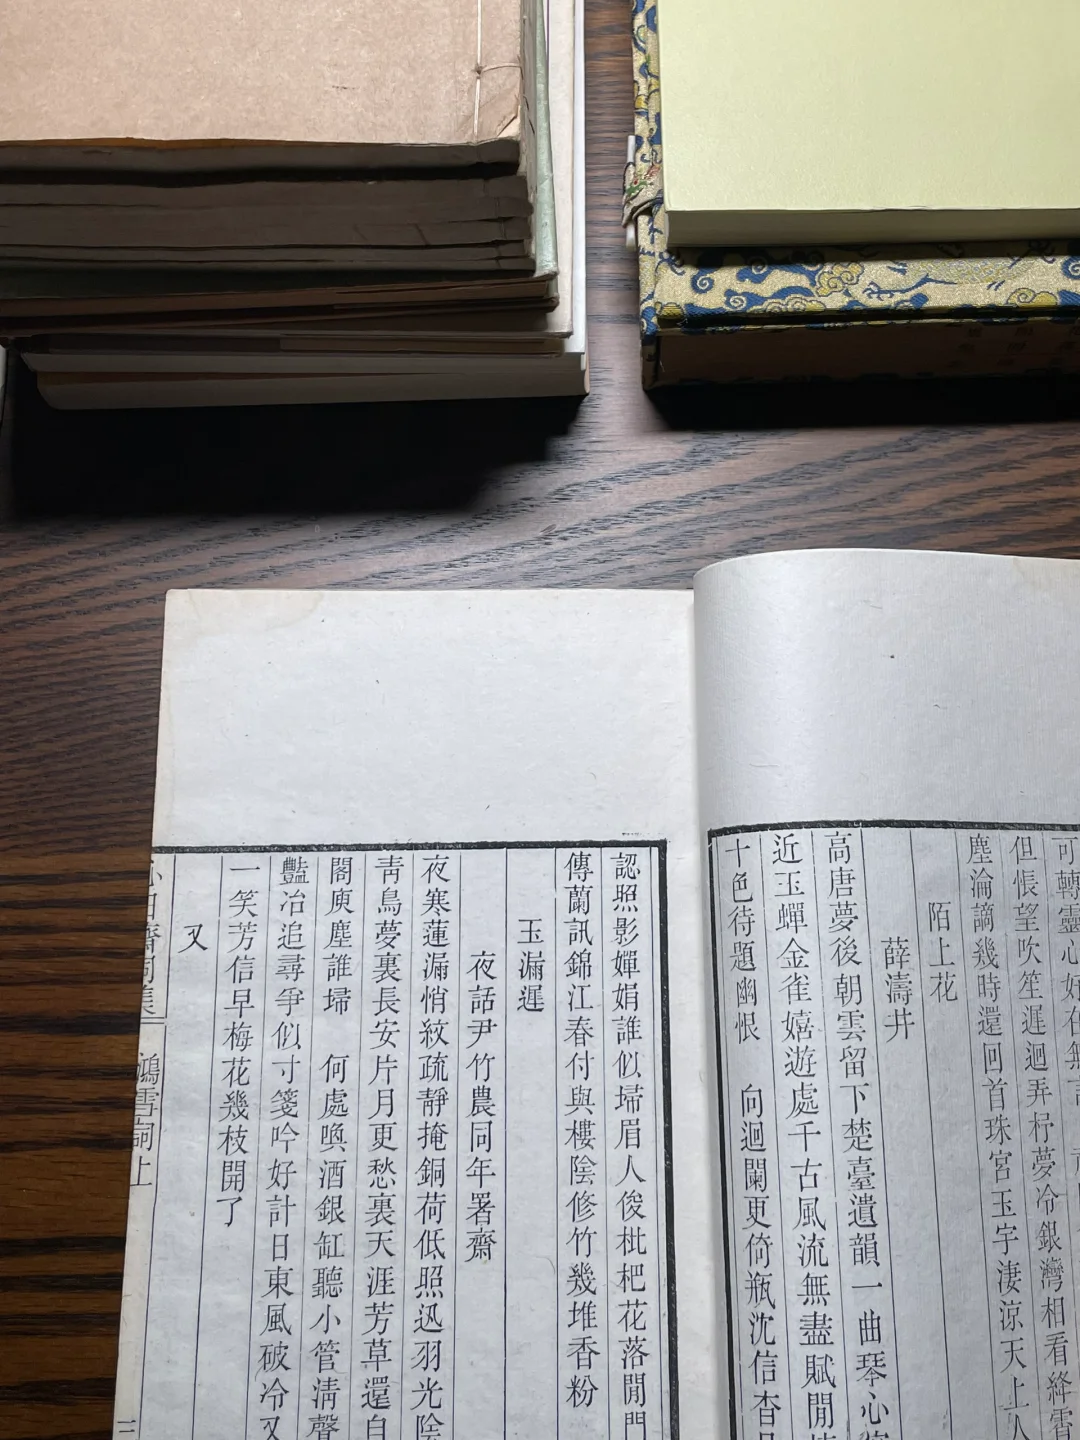 塵淪謫幾時還回首珠宮玉宇淒涼天上人
陌上花
薛濤井
高唐夢後朝雲留下楚臺遺韻一曲琴心
近玉蟬金雀嬉遊處千古風流無盡賦閒
十色待題幽恨　向迴闌更倚瓶沈信杳
認照影嬋娟誰似埽眉人俊枇杷花落閒門
傳蘭訊錦江春付與樓陰修竹幾堆香粉
玉漏遲
夜話尹竹農同年署齋
夜寒蓮漏悄紋疏靜掩銅荷低照迅羽光陰
靑鳥夢裏長安片月更愁裏天涯芳草還自
閣庾塵誰埽　何處喚酒銀缸聽小管淸聲
豔冶追尋爭似寸箋吟好計日東風破冷又
一笑芳信早梅花幾枝開了
又
鴻雪詞上